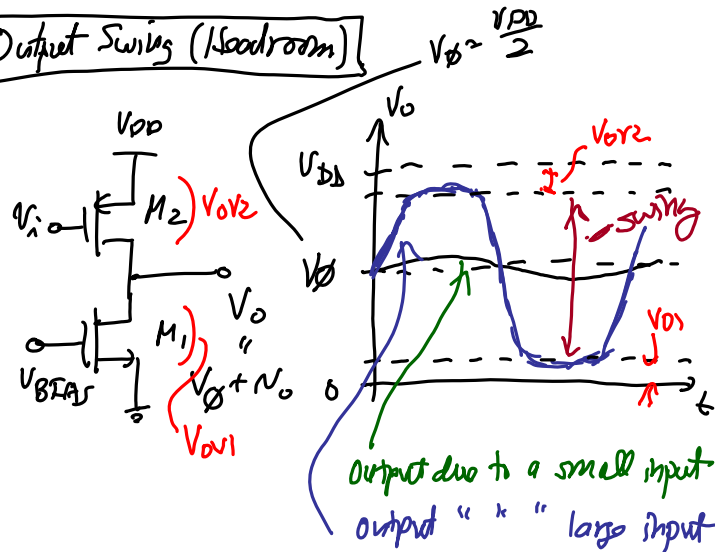 Output Swing (Headroom)
Vø = VDD/2
VDD
Vi
M2
VOV2
Vo
"
Vø + vo
M1
VBIAS
VOV1
Vo
VDD
VOV2
swing
Vø
VO1
0
t
output due to a small input
output " " " large input